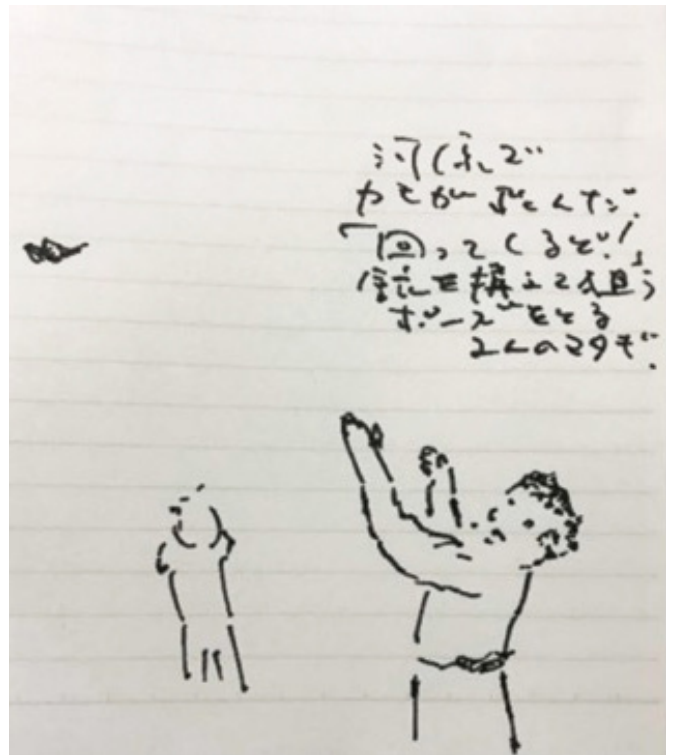 河原で
カモがとんだ。
「回ってくるぞ!」
銃を構えて狙う
ポーズをとる
2人のマタギ。